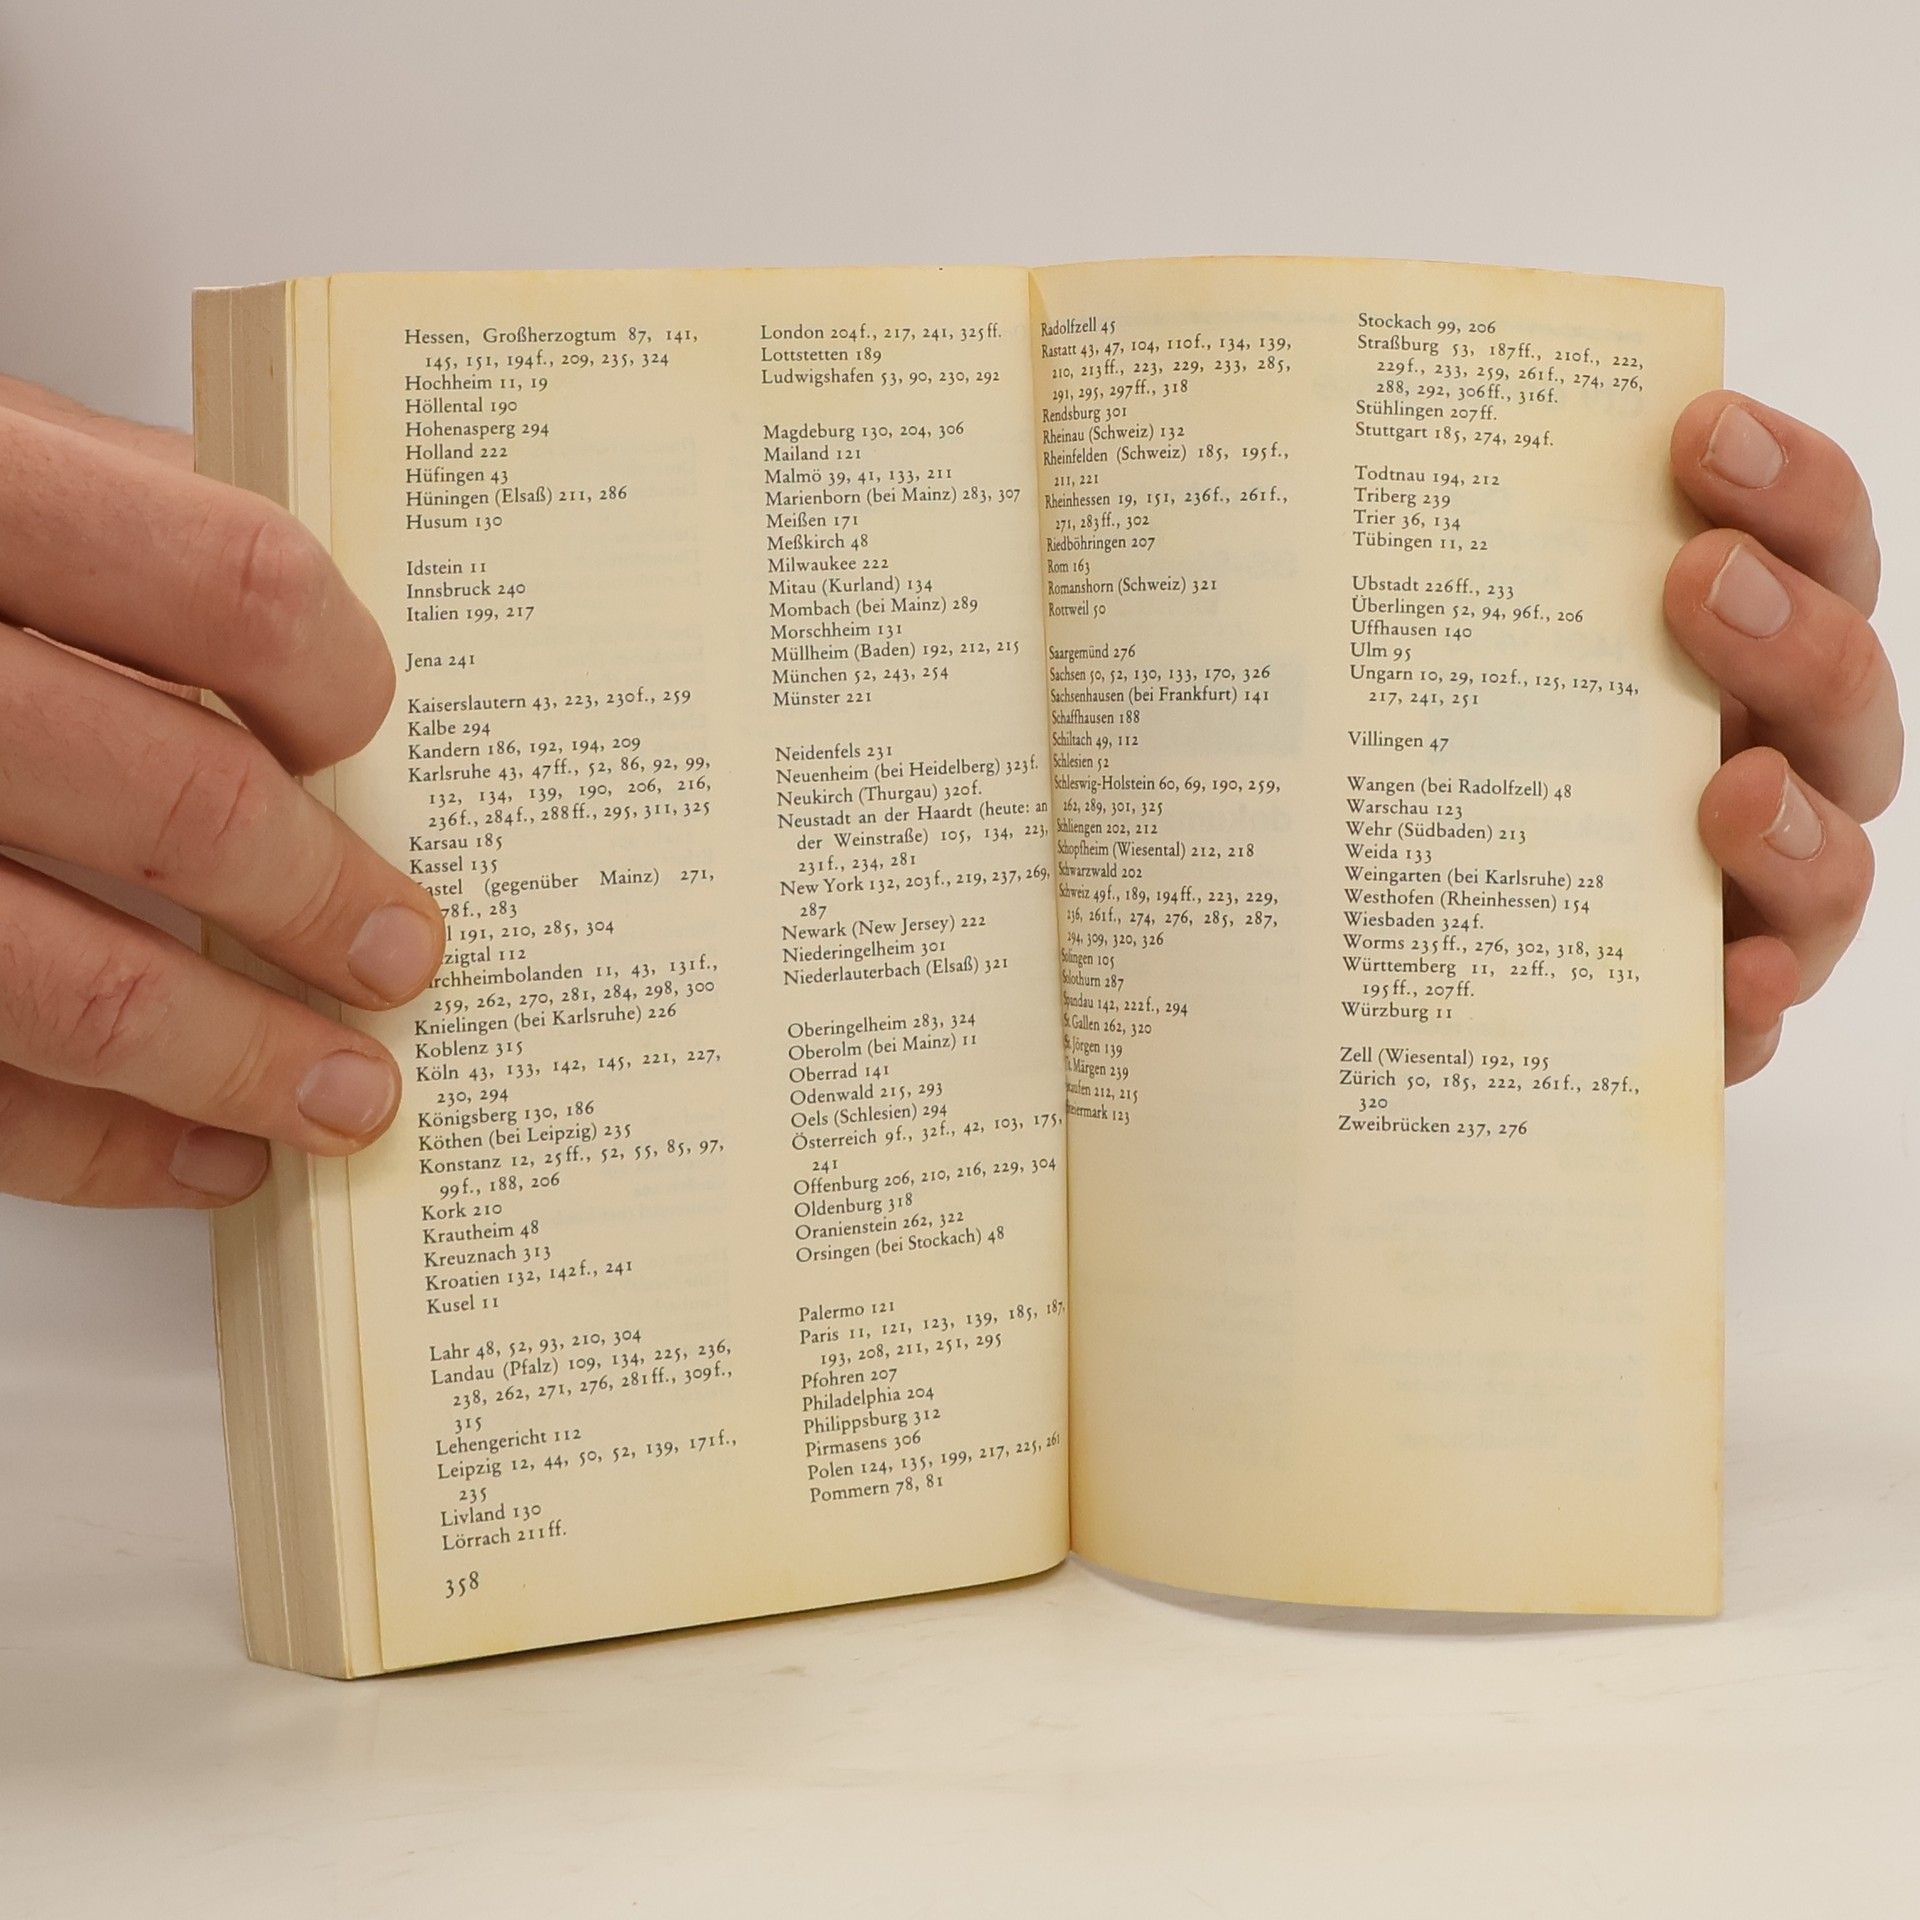 Hessen, Großherzogtum 87, 141,
145, 151, 194f., 209, 235, 324
Hochheim 11, 19
Höllental 190
Hohenasperg 294
Holland 222
Hüfingen 43
Hüningen (Elsaß) 211, 286
Husum 130
Idstein 11
Innsbruck 240
Italien 199, 217
Jena 241
Kaiserslautern 43, 223, 230f., 259
Kalbe 294
Kandern 186, 192, 194, 209
Karlsruhe 43, 47ff., 52, 86, 92, 99,
132, 134, 139, 190, 206, 216,
236f., 284f., 288ff., 295, 311, 325
Karsau 185
Kassel 135
(gegenüber Mainz) 271,
283
191, 210, 285, 304
112
11, 43, 131f.,
259, 262, 270, 281, 284, 298, 300
Knielingen (bei Karlsruhe) 226
Koblenz 315
Köln 43, 133, 142, 145, 221, 227,
230, 294
Königsberg 130, 186
Köthen (bei Leipzig) 235
Konstanz 12, 25ff., 52, 55, 85, 97,
99f., 188, 206
Kork 210
Krautheim 48
Kreuznach 313
Kroatien 132, 142f., 241
Kusel 11
Lahr 48, 52, 93, 210, 304
Landau (Pfalz) 109, 134, 225, 236,
238, 262, 271, 276, 281ff., 309f.,
315
Lehengericht 112
Leipzig 12, 44, 50, 52, 139, 171f.,
235
Livland 130
Lörrach 211ff.
358
London 204f., 217, 241, 325ff.
Lottstetten 189
Ludwigshafen 53, 90, 230, 292
Magdeburg 130, 204, 306
Mailand 121
Malmö 39, 41, 133, 211
Marienborn (bei Mainz) 283, 307
Meißen 171
Meßkirch 48
Milwaukee 222
Mitau (Kurland) 134
Mombach (bei Mainz) 289
Morschheim 131
Müllheim (Baden) 192, 212, 215
München 52, 243, 254
Münster 221
Neidenfels 231
Neuenheim (bei Heidelberg) 323f.
Neukirch (Thurgau) 320f.
Neustadt an der Haardt (heute: an
der Weinstraße) 105, 134, 223,
231f., 234, 281
New York 132, 203f., 219, 237, 269,
287
Newark (New Jersey) 222
Niederingelheim 301
Niederlauterbach (Elsaß) 321
Oberingelheim 283, 324
Oberolm (bei Mainz) 11
Oberrad 141
Odenwald 215, 293
Oels (Schlesien) 294
Österreich 9f., 32f., 42, 103, 175,
241
Offenburg 206, 210, 216, 229, 304
Oldenburg 318
Oranienstein 262, 322
Orsingen (bei Stockach) 48
Palermo 121
Paris 11, 121, 123, 139, 185, 187,
193, 208, 211, 251, 295
Pfohren 207
Philadelphia 204
Philippsburg 312
Pirmasens 306
Polen 124, 135, 199, 217, 225, 261
Pommern 78, 81
Radolfzell 45
Rastatt 43, 47, 104, 110f., 134, 139,
210, 213ff., 223, 229, 233, 285,
291, 295, 297ff., 318
Rendsburg 301
Rheinau (Schweiz) 132
Rheinfelden (Schweiz) 185, 195f.,
211, 221
Rheinhessen 19, 151, 236f., 261f.,
271, 283ff., 302
Riedböhringen 207
Rom 163
Romanshorn (Schweiz) 321
Rottweil 50
Saargemünd 276
Sachsen 50, 52, 130, 133, 170, 326
Sachsenhausen (bei Frankfurt) 141
Schaffhausen 188
Schiltach 49, 112
Schlesien 52
Schleswig-Holstein 60, 69, 190, 259,
262, 289, 301, 325
Schliengen 202, 212
Schopfheim (Wiesental) 212, 218
Schwarzwald 202
Schweiz 49f., 189, 194ff., 223, 229,
236, 261f., 274, 276, 285, 287,
294, 309, 320, 326
Solingen 105
Solothurn 287
Spandau 142, 222f., 294
St. Gallen 262, 320
St. Jörgen 139
St. Märgen 239
212, 215
123
Stockach 99, 206
Straßburg 53, 187ff., 210f., 222,
229f., 233, 259, 261f., 274, 276,
288, 292, 306ff., 316f.
Stühlingen 207ff.
Stuttgart 185, 274, 294f.
Todtnau 194, 212
Triberg 239
Trier 36, 134
Tübingen 11, 22
Ubstadt 226ff., 233
Überlingen 52, 94, 96f., 206
Uffhausen 140
Ulm 95
Ungarn 10, 29, 102f., 125, 127, 134,
217, 241, 251
Villingen 47
Wangen (bei Radolfzell) 48
Warschau 123
Wehr (Südbaden) 213
Weida 133
Weingarten (bei Karlsruhe) 228
Westhofen (Rheinhessen) 154
Wiesbaden 324f.
Worms 235ff., 276, 302, 318, 324
Württemberg 11, 22ff., 50, 131,
195ff., 207ff.
Würzburg 11
Zell (Wiesental) 192, 195
Zürich 50, 185, 222, 261f., 287f.,
320
Zweibrücken 237, 276